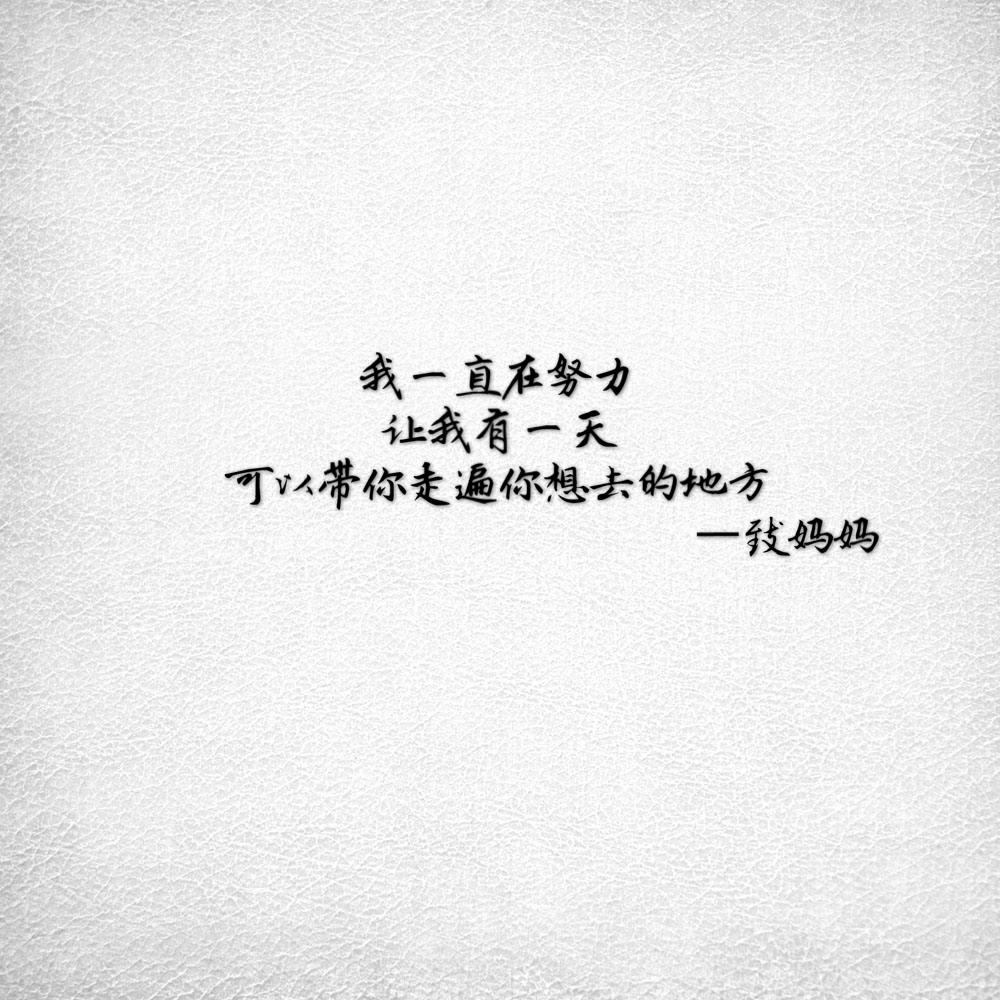 我一直在努力
让我有一天
可以带你走遍你想去的地方
—致妈妈